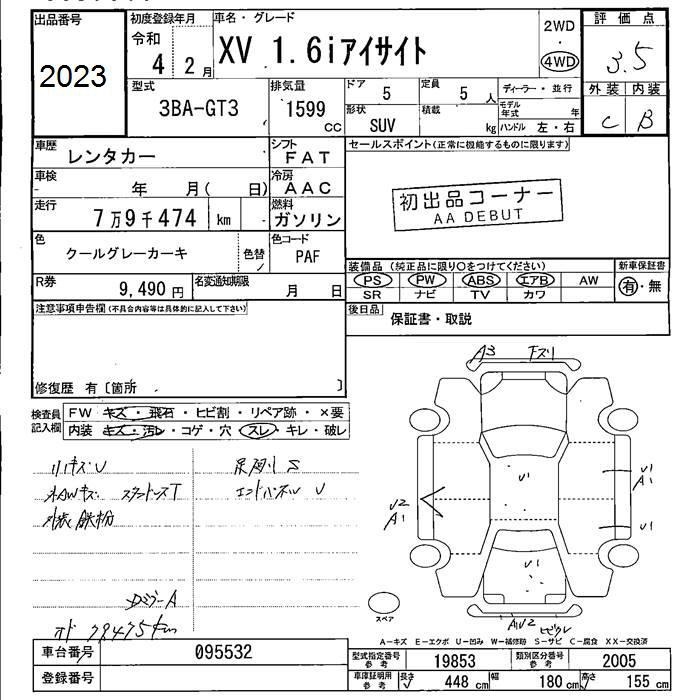 出品番号
2023
初度登録年月
令和
4 2月
車名・グレード
XV 1.6iアイサイト
2WD
・
4WD
評価点
3.5
外装 内装
C B
型式
3BA-GT3
排気量
1599
CC
ドア
5
定員
5 人
形状
SUV
積載
kg
ディーラー・並行
モデル年式 年
ハンドル 左・右
車歴
レンタカー
シフト
FAT
車検
年 月( 日)
冷房
AAC
走行
7万9千474 km
燃料
ガソリン
色
クールグレーカーキ
色替
色コード
PAF
R券
9,490円
名変通知期限
月 日
セールスポイント(正常に機能するものに限ります)
初出品コーナー
AA DEBUT
装備品 (純正品に限り○をつけてください)
新車保証書
PS PW ABS エアB AW
SR ナビ TV カワ
有・無
後日品
保証書・取説
注意事項申告欄(不具合内容等は具体的に記入して下さい)
修復歴 有〔箇所 〕
検査員記入欄
FW キズ・飛石・ヒビ割・リペア跡・×要
内装 キズ・汚レ・コゲ・穴・スレ・キレ・破レ
小キズU
足廻りS
外AWキズ
エンドパネルU
外装鉄粉
DミラーA
オド 79475km
A3 下ズリ
U1
U2
A1
U1
A1
U1
U1
AU2
スペア
A-キズ E-エクボ U-凹み W-補修跡 S-サビ C-腐食 XX-交換済
車台番号
095532
登録番号
型式指定番号
参考
19853
類別区分番号
参考
2005
車庫証明用
参考
長さ
448 cm
幅
180 cm
高さ
155 cm